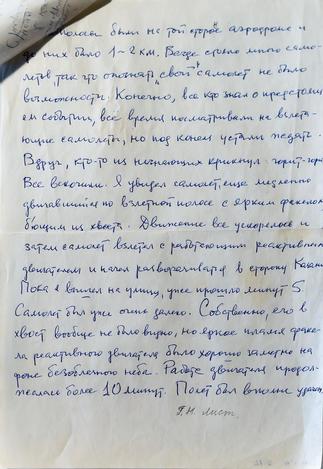 полосы были на той стороне аэродрома и
до них было 1-2 км. Везде стояло много само-
летов, так что опознать "свой" самолет не было
возможности. Конечно, все кто знал о предстоящ-
ем событии, все время посматривали на взлета-
ющие самолеты, но под конец устали ждать.
Вдруг, кто-то из крикнул - горит-гори
Все вскочили. Я увидел самолет, еще медленно
двигавшийся по взлетной полосе с ярким факелом
бьющим из хвоста. Движение все ускорялось и
затем самолет взлетал с работающим реактивным
двигателем и начал разворачиваться в сторону Казани
Пока я вышел на улицу, уже прошло минут 5.
Самолет был уже очень далеко. Собственно, его и
хвост вообще не было видно, но яркое пламя факе-
ла реактивного двигателя было хорошо заметно на
фоне безоблачного неба. Работа двигателя продол-
жалась более 10 минут. Полет был вполне удачн
Г.Н. Лист